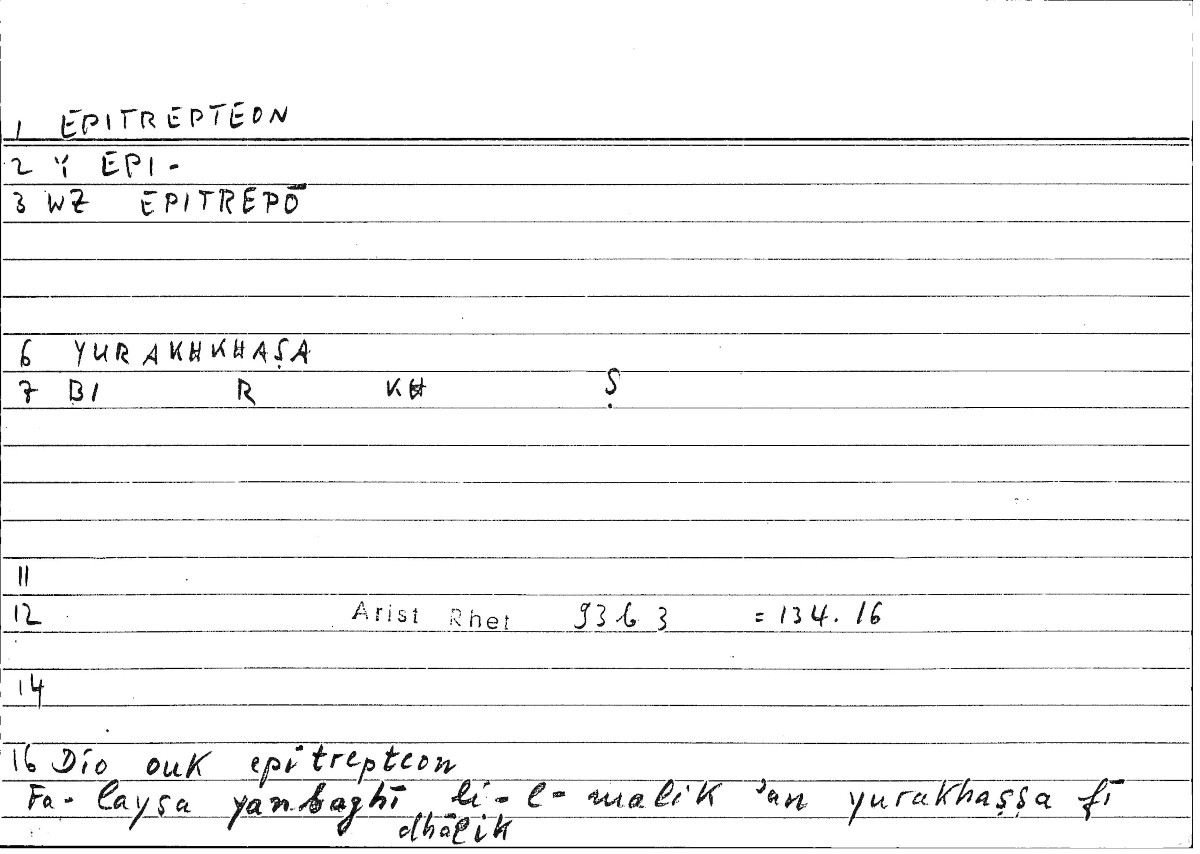 1 EPITREPTEON
2 Y EPI-
3 WZ EPITREPŌ
6 YURAKHKHAṢA
7 BI R KH Ṣ
11
12 Arist Rhet 93b3 = 134.16
14
16 Dio ouk epitrepteon
Fa-laysa yanbaghī li-l-malik ʾan yurakhaṣṣa fī
dhālik